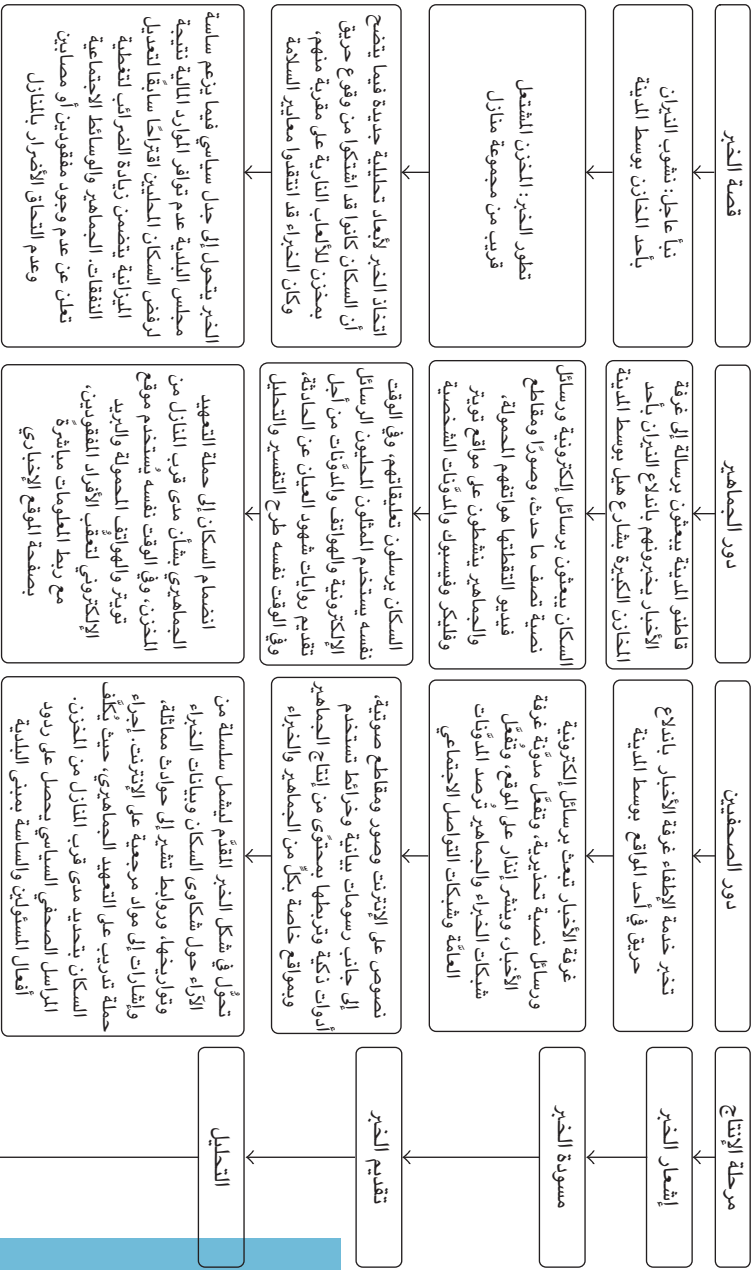 مرحلة الإنتاج
دور الصحفيين
دور الجماهير
قصة الخبر
إشعار الخبر
تخبر خدمة الإطفاء غرفة الأخبار باندلاع
حريق في أحد المواقع بوسط المدينة
قاطنو المدينة يبعثون برسالة إلى غرفة
الأخبار يخبرونهم باندلاع النيران بأحد
المخازن الكبيرة بشارع هيل بوسط المدينة
نبأ عاجل: نشوب النيران
بأحد المخازن بوسط المدينة
مسودة الخبر
غرفة الأخبار تبعث برسائل إلكترونية
ورسائل نصية تحذيرية، وتفعَّل مدوَّنة غرفة
الأخبار، وينشر إنذار على الموقع، وتُفعَّل
شبكات الخبراء والجماهير تُرصد المدوَّنات
العامَّة وشبكات التواصل الاجتماعي
السكان يبعثون برسائل إلكترونية ورسائل
نصية تصف ما حدث، وصورًا ومقاطع
فيديو التقطتها هواتفهم المحمولة،
والجماهير ينشطون على مواقع تويتر
وفليكر وفيسبوك والمدوَّنات الشخصية
تطور الخبر: المخزن المشتعل
قريب من مجموعة منازل
تقديم الخبر
نصوص على الإنترنت وصور ومقاطع صوتية،
إلى جانب رسومات بيانية وخرائط تستخدم
أدوات ذكية وتربطها بمحتوًى من إنتاج الجماهير
وبمواقع خاصة بكلٍّ من الجماهير والخبراء
السكان يرسلون تعليقاتهم، وفي الوقت
نفسه يستخدم الممثلون المحليون الرسائل
الإلكترونية والهواتف والمدوَّنات من أجل
تقديم روايات شهود العيان عن الحادثة،
وفي الوقت نفسه طرح التفسير والتحليل
اتخاذ الخبر لأبعاد تحليلية جديدة فيما يتضح
أن السكان كانوا قد اشتكوا من وقوع حريق
بمخزن للألعاب النارية على مقربة منهم،
وكان الخبراء قد انتقدوا معايير السلامة
التحليل
تحوُّل في شكل الخبر المقدَّم ليشمل سلسلة من
الآراء حول شكاوى السكان وبيانات الخبراء
وتواريخها، وروابط تشير إلى حوادث مماثلة،
وإشارات إلى مواد مرجعية على الإنترنت. إجراء
حملة تدريب على التعهيد الجماهيري، حيث يُكلَّف
السكان بتحديد مدى قرب المنازل من المخزن.
المراسل الصحفي السياسي يحصل على ردود
أفعال المسئولين والساسة بمبنى البلدية
انضمام السكان إلى حملة التعهيد
الجماهيري بشأن مدى قرب المنازل من
المخزن، وفي الوقت نفسه يُستخدم موقع
تويتر والهواتف المحمولة والبريد
الإلكتروني لتعقب الأفراد المفقودين،
مع ربط المعلومات مباشرةً
بصفحة الموقع الإخباري
الخبر يتحول إلى جدل سياسي فيما يزعم ساسة
مجلس البلدية عدم توافر الموارد المالية نتيجة
لرفض السكان المحليين اقتراحًا سابقًا لتعديل
الميزانية يتضمن زيادة الضرائب لتغطية
النفقات. الجماهير والوسائط الاجتماعية
تعلن عن عدم وجود مفقودين أو مصابين
وعدم التحاق الأضرار بالمنازل